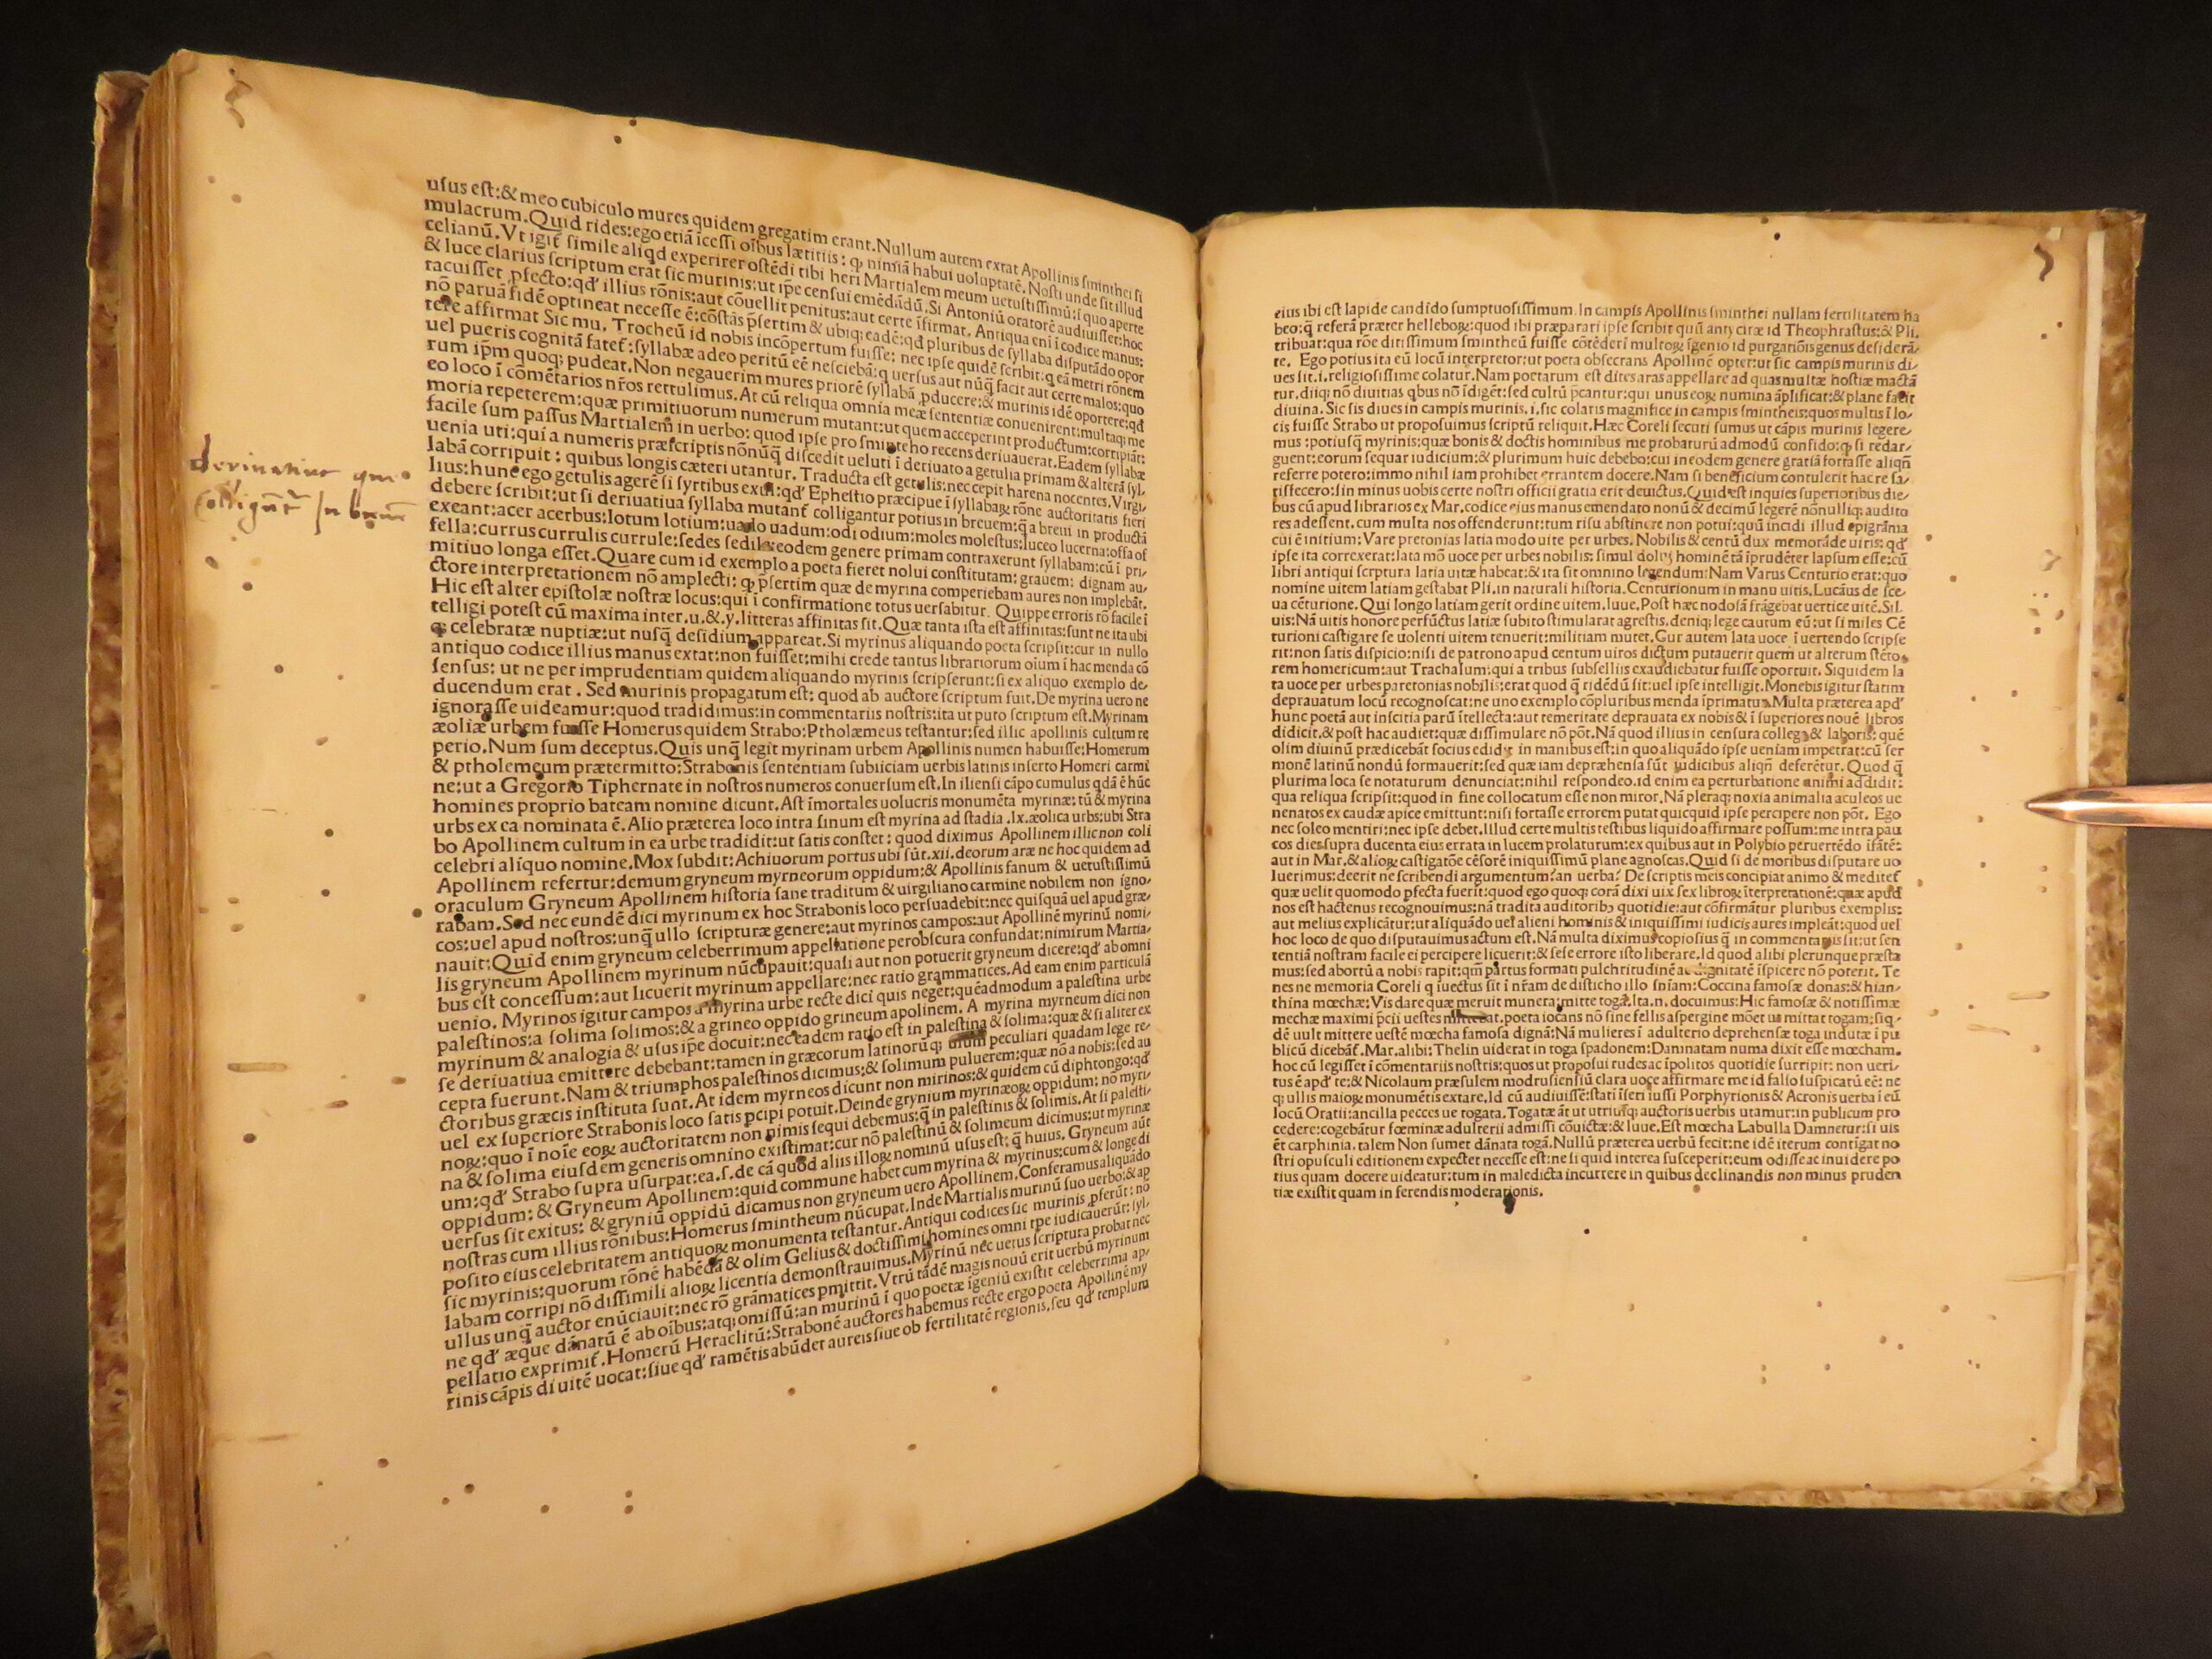 uſus eſt:& meo cubiculo mures quidem gregatim erant. Nullum autem extat Apollinis ſminthei ſi
mulacrum. Quid rides: ego etiā iceſſi oībus lætitiis: ꝙ nimiā habui uoluptatē. Noſti unde ſit illud
celianū. Vt igit̃ ſimile aliqd experirer oſtēdi tibi heri Martialem meum uetuſtiſſimū: ī quo aperte
& luce clarius ſcriptum erat ſic murinis: ut ipe cenſui emēdādū. Si Antoniū oratorē audiuiſſet: hoc
tacuiſſet ,pfecto: qď illius rōnis: aut cōuellit penitus: aut certe īfirmat. Antiqua eni ī codice manus:
nō paruā fidē optineat neceſſe ē: cōſtās p̄ſertim & ubiq; eadē: qď pluribus de ſyllaba diſputādo opor
tere affirmat Sic mu, Trocheū id nobis incōpertum fuiſſe: nec ipſe quidē ſcribit: ꝗ eā metri rōnem
uel pueris cognitā fatet̃: ſyllabæ adeo peritū eē neſciebā: ꝗ uerſus aut nūꝗ facit aut certe malos: quo
rum ip̄m quoq; pudeat. Non negauerim mures priorē ſyllabā ,pducere: & murinis idē oportere: qď
eo loco ī cōmētarios nr̄os rettulimus. At cū reliqua omnia meæ ſententiæ conuenirent: multaq; me
moria repeterem: quæ primitiuorum numerum mutant: ut quem acceperint productum: corripiāt:
facile ſum paſſus Martialem in uerbo: quod ipſe pro ſminteho recens deriuauerat. Eadem ſyllabæ
uenia uti: qui a numeris præſcriptis nōnūꝗ diſcedit ueluti ī deriuato a getulia primam & alterā ſyl,
labā corripuit: quibus longis cæteri utantur. Traducta eſt getulis: nec cepit harena nocentes. Virgi,
lius: hunc ego getulis agerē ſi ſyrtibus exul: qď Epheſtio præcipue ī ſyllabaꝝ rōne auctoritatis fieri
debere ſcribit: ut ſi deriuatiua ſyllaba mutant̃ colligantur potius in breuem: ꝗ̄ a breui in productā
exeant: acer acerbus: lotum lotium: uado uadum: odi odium: moles moleſtus: luceo lucerna: offa of
fella: currus currulis currule: ſedes ſedile: eodem genere primam contraxerunt ſyllabam: cū ī pri,
mitiuo longa eſſet. Quare cum id exemplo a poeta fieret nolui conſtitutam: grauem: dignam au,
ctore interpretationem nō amplecti: ꝙ p̄ſertim quæ de myrina comperiebam aures non implebāt.
Hic eſt alter epiſtolæ noſtræ locus: qui ī confirmatione totus uerſabitur. Quippe erroris rō facile ī
telligi poteſt cū maxima inter. u. &. y. litteras affinitas ſit. Quæ tanta iſta eſt affinitas: ſunt ne ita ubi
q; celebratæ nuptiæ: ut nuſꝗ̄ deſidium appareat. Si myrinus aliquando poeta ſcripſit: cur in nullo
antiquo codice illius manus extat: non fuiſſet: mihi crede tantus librariorum oium ī hac menda cō
ſenſus: ut ne per imprudentiam quidem aliquando myrinis ſcripſerunt: ſi ex aliquo exemplo de,
ducendum erat. Sed murinis propagatum eſt: quod ab auctore ſcriptum fuit. De myrina uero ne
ignoraſſe uideamur: quod tradidimus: in commentariis noſtris: ita ut puto ſcriptum eſt. Myrinam
æoliæ urbem fuiſſe Homerus quidem Strabo: Ptholæmeus teſtantur: ſed illic apollinis cultum re
perio. Num ſum deceptus. Quis unꝗ̄ legit myrinam urbem Apollinis numen habuiſſe: Homerum
& ptholemeum prætermitto: Strabonis ſententiam ſubiiciam uerbis latinis inſerto Homeri carmi
ne: ut a Gregorio Tiphernate in noſtros numeros conuerſum eſt. In ilienſi cāpo cumulus qdā ē hūc
homines proprio bateam nomine dicunt. Aſt īmortales uolucris monumēta myrinæ: tū & myrina
urbs ex ea nominata ē. Alio præterea loco intra ſinum eſt myrina ad ſtadia .lx. æolica urbs: ubi Stra
bo Apollinem cultum in ea urbe tradidit: ut ſatis conſtet: quod diximus Apollinem illic non coli
celebri aliquo nomine. Mox ſubdit: Achiuorum portus ubi ſūt. xii. deorum aræ ne hoc quidem ad
Apollinem refertur: demum gryneum myrneorum oppidum: & Apollinis fanum & uetuſtiſſimū
oraculum Gryneum Apollinem hiſtoria ſane traditum & uirgiliano carmine nobilem non igno,
rabam. Sed nec eundē dici myrinum ex hoc Strabonis loco perſuadebit: nec quiſquā uel apud græ,
cos: uel apud noſtros: unꝗ̄ ullo ſcripturæ genere: aut myrinos campos: aut Apollinē myrinū nomi,
nauit: Quid enim gryneum celeberrimum appellatione perobſcura confundat: nimirum Martia,
lis gryneum Apollinem myrinum nūcupauit: quaſi aut non potuerit gryneum dicere: qď ab omni
bus eſt conceſſum: aut licuerit myrinum appellare: nec ratio grammatices. Ad eam enim particulā
uenio. Myrinos igitur campos a myrina urbe recte dici quis neget: quēadmodum a paleſtina urbe
paleſtinos: a ſolima ſolimos: & a grineo oppido grineum apolinem. A myrina myrneum dici non
myrinum & analogia & uſus ipe docuit: nec eadem ratio eſt in paleſtina & ſolima: quæ & ſi aliter ex
ſe deriuatiua emittere debebant: tamen in græcorum latinorūq; unum peculiari quadam lege re,
cepta fuerunt. Nam & triumphos paleſtinos dicimus: & ſolimum puluerem: quæ nō a nobis: ſed au
ctoribus græcis inſtituta ſunt. At idem myrneos dicunt non mirinos: & quidem cū diphtongo: qď
uel ex ſuperiore Strabonis loco ſatis pcipi potuit. Deinde grynium myrinæoꝝ oppidum: nō myri,
noꝝ: quo ī noīe eoꝝ auctoritatem non nimis ſequi debemus: ꝗ̄ in paleſtinis & ſolimis. At ſi paleſti,
na & ſolima eiuſdem generis omnino exiſtimat: cur nō paleſtinū & ſolimeum dicimus: ut myrinæ
um: qď Strabo ſupra uſurpat: ea. ſ. de cā quod aliis illoꝝ nominū uſus eſt: ꝗ̄ huius. Gryneum aūt
oppidum: & Gryneum Apollinem: quid commune habet cum myrina & myrinus: cum & longe di
uerſus ſit exitus: & gryniū oppidū dicamus non gryneum uero Apollinem. Conferamus aliquādo
noſtras cum illius rōnibus: Homerus ſmintheum nūcupat. Inde Martialis murinū ſuo uerbo: & ap
poſito eius celebritatem antiquoꝝ monumenta teſtantur. Antiqui codices ſic murinis ,pferūt: nō
ſic myrinis: quorum rōnē habēdā & olim Gelius & doctiſſimi homines omni tpe iudicauerūt: ſyl,
labam corripi nō diſſimili alioꝝ licentia demonſtrauimus. Myrinū nec uetus ſcriptura probat nec
ullus unꝗ̄ auctor enūciauit: nec rō grāmatices pmittit. Vtrū tādē magis nouū erit uerbū myrinum
ne qď æque dānatū ē ab oībus: atq; omiſſū: an murinū ī quo poetæ īgeniū exiſtit celeberrima ap,
pellatio exprimit̃. Homerū Heraclitū: Strabonē auctores habemus recte ergo poeta Apollinē my
rinis cāpis di uitē uocat: ſiue qď ramētis abūdet aureis ſiue ob fertilitatē regionis, ſeu qď templum
deriuatiue
colligūt̃ in breuē
eius ibi eſt lapide candido ſumptuoſiſſimum. In campis Apollinis ſminthei nullam fertilitatem ha
beo: ꝗ̄ referā præter helleboꝝ: quod ibi præparari ipſe ſcribit quū anty ciræ id Theophraſtus: & Pli.
tribuat: qua rōe ditiſſimum ſmintheū fuiſſe cōtēderī multoꝝ īgenio id purgatiōis genus deſiderā,
te. Ego potius ita eū locū interpretor: ut poeta obſecrans Apollinē optet: ut ſic campis murinis di,
ues ſit .i. religioſiſſime colatur. Nam poetarum eſt dites aras appellare ad quas multæ hoſtiæ mactā
tur. diiq; nō diuitias qbus nō īdigēt: ſed cultū p̄cantur: qui unus eoꝝ numina āplificat: & plane facit
diuina. Sic ſis diues in campis murinis. i. ſic colaris magnifice in campis ſmintheis: quos multis ī lo,
cis fuiſſe Strabo ut propoſuimus ſcriptū reliquit. Hæc Coreli ſecuti ſumus ut cāpis murinis legere,
mus: potiuſꝗ̄ myrinis: quæ bonis & doctis hominibus me probaturū admodū confido: ꝙ ſi redar,
guent: eorum ſequar iudicium: & plurimum huic debebo: cui in eodem genere gratiā fortaſſe aliqn̄
referre potero: immo nihil iam prohibet errantem docere. Nam ſi beneficium contulerit hac re ſa,
tiſſecero: ſin minus uobis certe noſtri officii gratia erit deuictus. Quid eſt inquies ſuperioribus die,
bus cū apud librarios ex Mar. codice eius manus emendato nonū & decimū legerē nōnulliq; audito
res adeſſent. cum multa nos offenderunt: tum riſu abſtinere non potui: quū incidi illud epigrāma
cui ē initium: Vare pretonias latia modo uite per urbes. Nobilis & centū dux memorāde uiris: qď
ipſe ita correxerat: lata mō uoce per urbes nobilis: ſimul dolui hominē tā īprudēter lapſum eſſe: cū
libri antiqui ſcrptura latia uitæ habeat: & ita ſit omnino legendum: Nam Varus Centurio erat: quo
nomine uitem latiam geſtabat Pli. in naturali hiſtoria. Centurionum in manu uitis. Lucāus de ſce,
ua cēturione. Qui longo latiam gerit ordine uitem. Iuue. Poſt hæc nodoſā frāgebat uertice uitē. Sil.
uis: Nā uitis honore perfūctus latiæ ſubito ſtimularat agreſtis. deniq; lege cautum eū: ut ſi miles Cē
turioni caſtigare ſe uolenti uitem tenuerit: militiam mutet. Cur autem lata uoce ī uertendo ſcripſe
rit: non ſatis diſpicio: niſi de patrono apud centum uiros dictum putauerit quem ut alterum ſtēto,
rem homericum: aut Trachalum: qui a tribus ſubſelliis exaudiebatur fuiſſe oportuit. Siquidem la
ta uoce per urbes paretonias nobilis: erat quod ꝗ̄ ridēdū ſit: uel ipſe intelligit. Monebis igitur ſtatim
deprauatum locū recognoſcat: ne uno exemplo cōpluribus menda īprimatur. Multa præterea apď
hunc poetā aut inſcitia parū ītellecta: aut temeritate deprauata ex nobis & ī ſuperiores nouē libros
didicit. & poſt hac audiet: quæ diſſimulare nō pōt. Nā quod illius in cenſura collega & laboris: quē
olim diuinū prædicebāt ſocius edidit in manibus eſt: in quo aliquādo ipſe ueniam impetrat: cū ſer
monē latinū nondū formauerit: ſed quæ iam depræhenſa ſūt iudicibus aliqn̄ deferētur. Quod ꝗ̄
plurima loca ſe notaturum denunciat: nihil reſpondeo. id enim ea perturbatione animi addidit:
qua reliqua ſcripſit: quod in fine collocatum eſſe non miror. Nā pleraq; noxia animalia aculeos ue
nenatos ex caudæ apice emittunt: niſi fortaſſe errorem putat quicquid ipſe percipere non pōt. Ego
nec ſoleo mentiri: nec ipſe debet. Illud certe multis teſtibus liquido affirmare poſſum: me intra pau
cos dies ſupra ducenta eius errata in lucem prolaturum: ex quibus aut in Polybio peruertēdo īfātē:
aut in Mar. & alioꝝ caſtigatōe cēſorē iniquiſſimū plane agnoſcas. Quid ſi de moribus diſputare uo
luerimus: deerit ne ſcribendi argumentum? an uerba? De ſcriptis meis concipiat animo & meditet̃
quæ uelit quomodo pfecta fuerit: quod ego quoq; corā dixi uix ſex libroꝝ īterpretationē: quæ apud
nos eſt hactenus recognouimus: nā tradita auditoribꝫ quotidie: aut cōfirmātur pluribus exemplis:
aut melius explicātur: ut aliquādo uel alieni hominis & iniquiſſimi iudicis aures impleāt: quod uel
hoc loco de quo diſputauimus actum eſt. Nā multa diximus copioſius ꝗ̄ in commentariis ſit: ut ſen
tentiā noſtram facile ei percipere licuerit: & ſeſe errore iſto liberare. Id quod alibi plerunque præſta
mus: ſed abortū a nobis rapit: qm̄ partus formati pulchritudinē ac dignitatē īſpicere nō poterit. Te
nes ne memoria Coreli ꝗ īuectus ſit ī nr̄am de diſticho illo ſnīam: Coccina famoſæ donas: & hian,
thina mœchæ: Vis dare quæ meruit munera: mitte togā. Ita. n. docuimus: Hic famoſæ & notiſſimæ
mechæ maximi p̄cii ueſtes mittebat. poeta iocans nō ſine fellis aſpergine mōet ut mittat togam: ſiq,
dē uult mittere ueſtē mœcha famoſa dignā: Nā mulieres ī adulterio deprehenſæ toga indutæ ī pu
blicū dicebāt̃. Mar. alibi: Thelin uiderat in toga ſpadonem: Damnatam numa dixit eſſe mœcham.
hoc cū legiſſet ī cōmentariis noſtris: quos ut propoſui rudes ac īpolitos quotidie ſurripit: non ueri,
tus ē apď te: & Nicolaum præſulem modruſienſiū clara uoce affirmare me id falſo ſuſpicatū eē: ne
q; ullis maioꝝ monumētis extare. Id cū audiuiſſē: ſtati īſeri iuſſi Porphyrionis & Acronis uerba ī eū
locū Oratii: ancilla pecces ue togata. Togatæ āt ut utriuſq; auctoris uerbis utamur: in publicum pro
cedere: cogebātur fœminæ adulterii admiſſi cōuictæ: & Iuue. Eſt mœcha Labulla Damnetur: ſi uis
ēt carphinia. talem Non ſumet dānata togā. Nullū præterea uerbū fecit: ne idē iterum contīgat no
ſtri opuſculi editionem expectet neceſſe eſt: ne ſi quid interea ſuſceperit: eum odiſſe ac inuidere po
tius quam docere uideatur: tum in maledicta incurrere in quibus declinandis non minus pruden
tiæ exiſtit quam in ferendis moderationis.